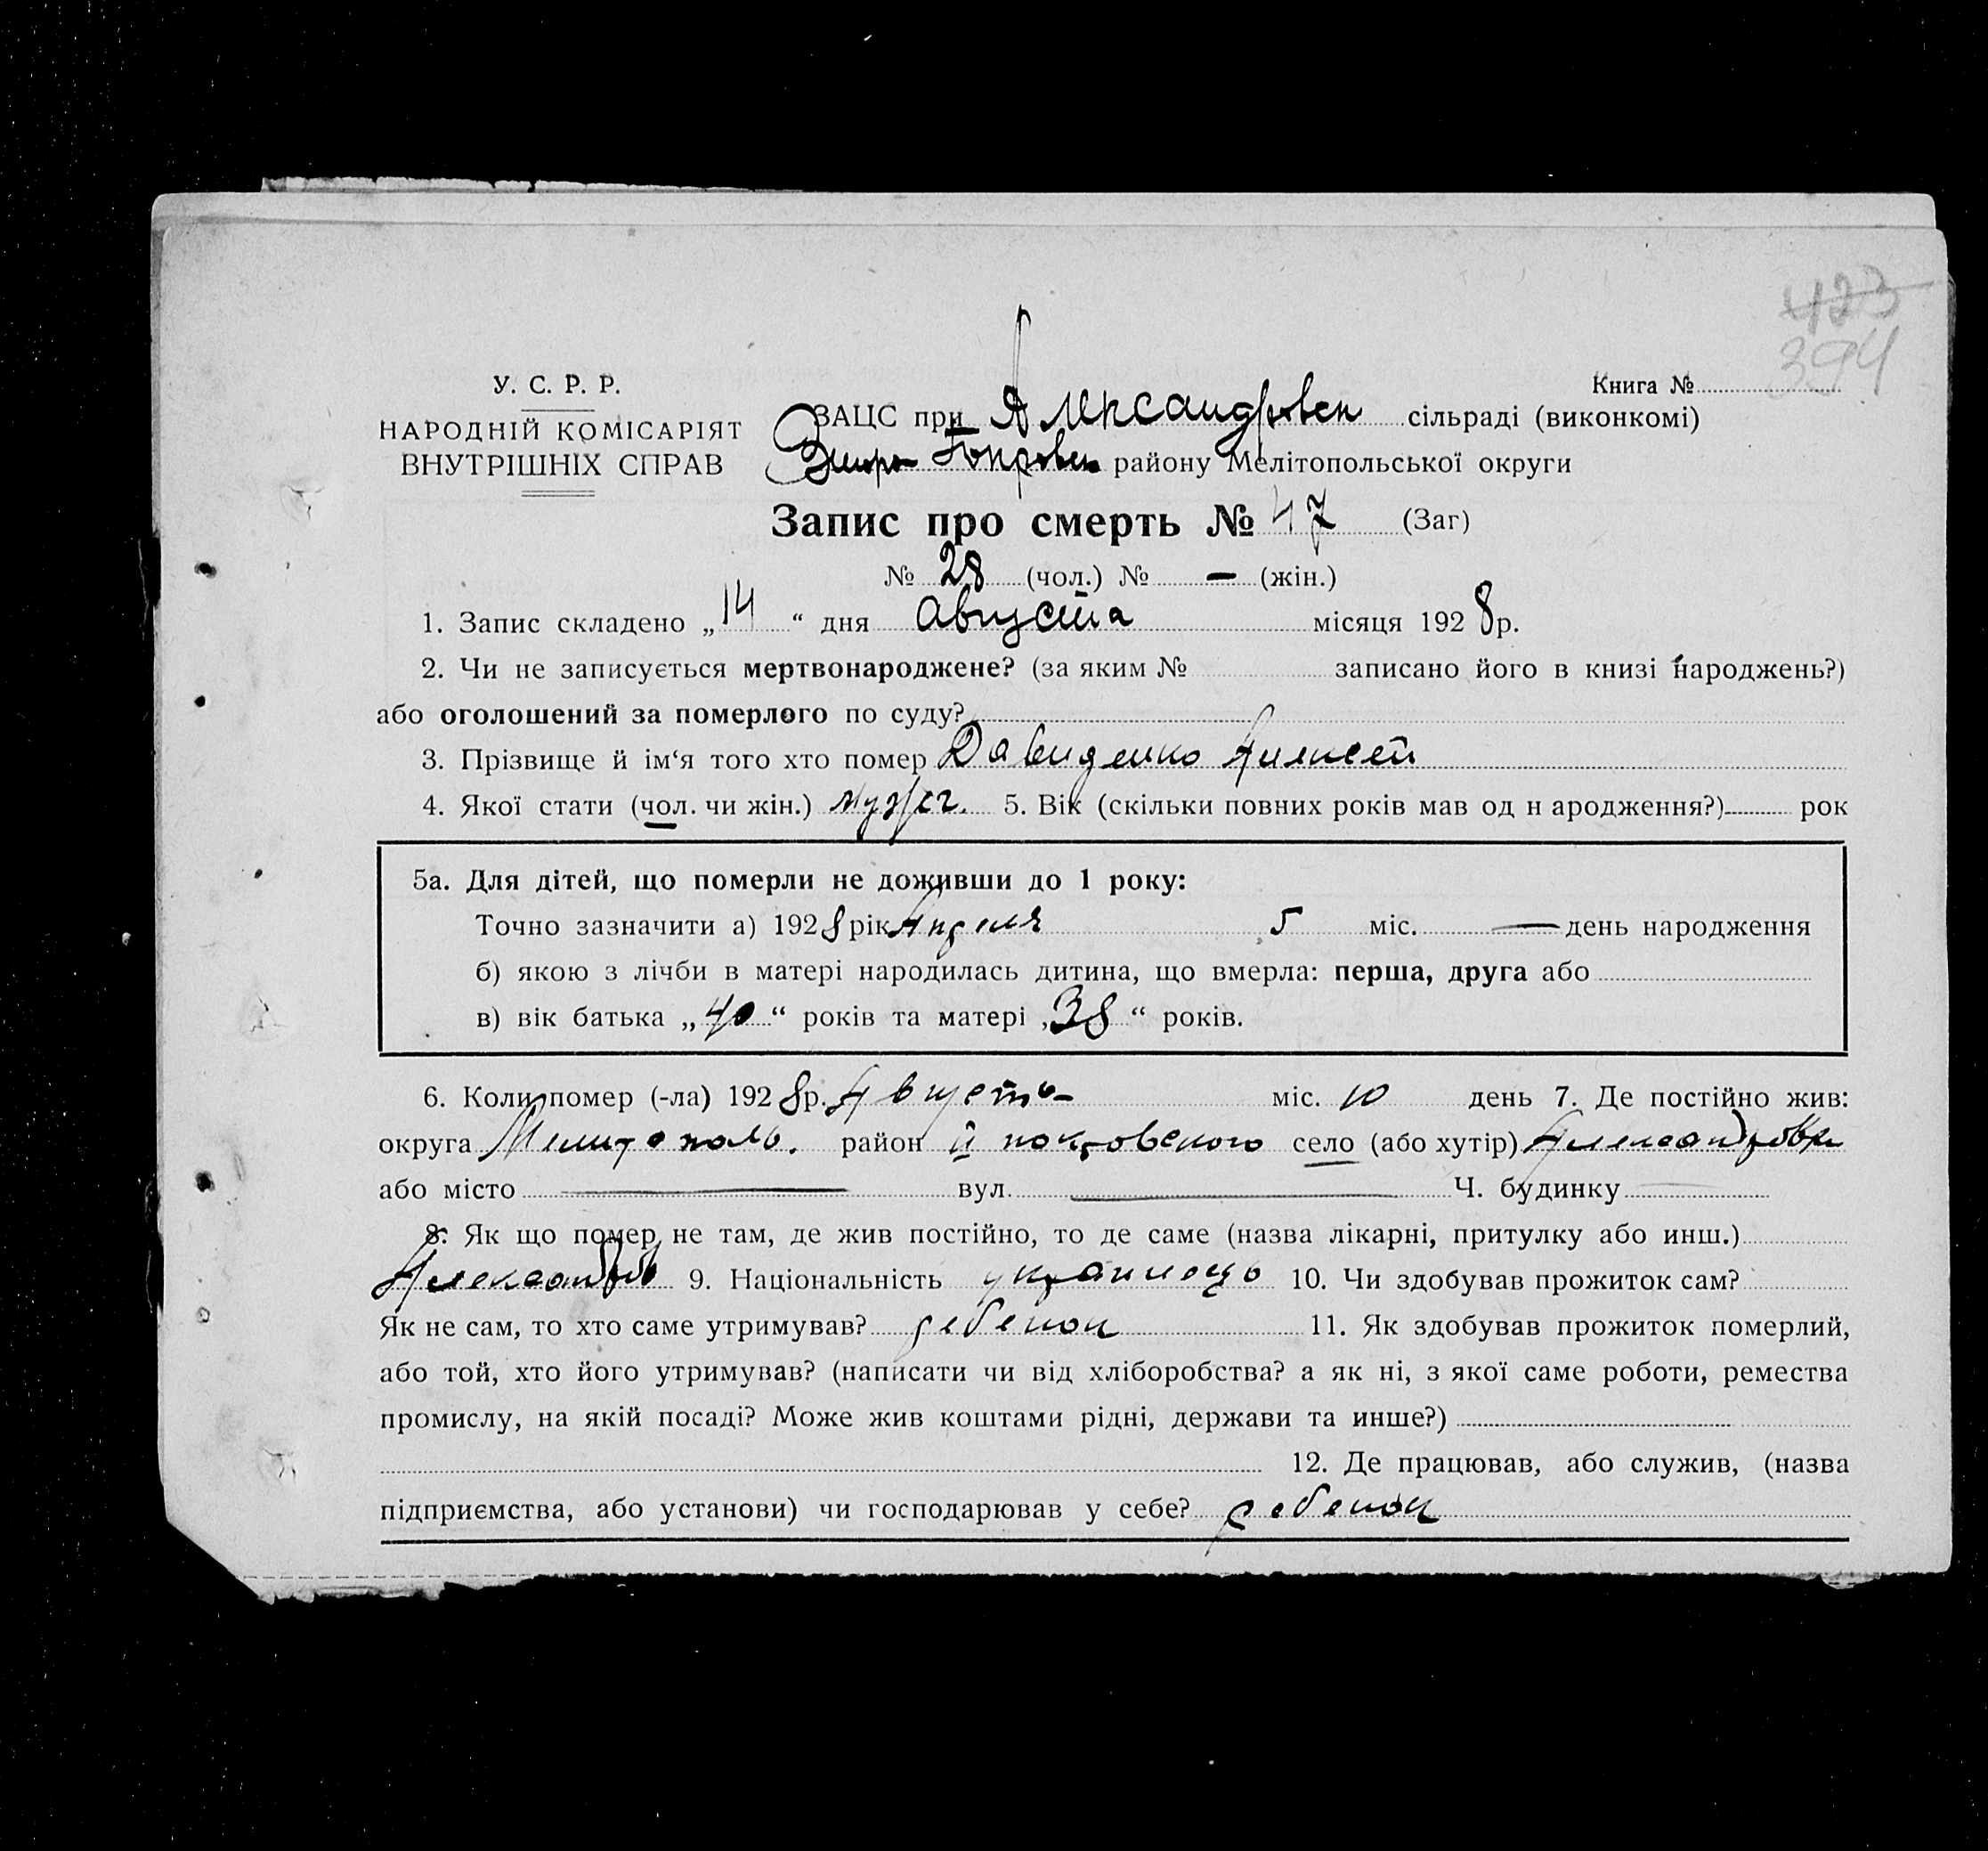 423
394
У. С. Р. Р.
НАРОДНІЙ КОМІСАРІЯТ
ВНУТРІШНІХ СПРАВ
Книга №
ЗАЦС при Александровск сільраді (виконкомі)
Покровск району Мелітопольської округи
Запис про смерть № 47 (Заг)
№ 28 (чол.) № — (жін.)
1. Запис складено „14“ дня Августа місяця 1928р.
2. Чи не записується мертвонароджене? (за яким № записано його в книзі народжень?)
або оголошений за померлого по суду?
3. Прізвище й ім‘я того хто помер Давиденко Алексей
4. Якої стати (чол. чи жін.) мужск. 5. Вік (скільки повних років мав од н ародження?) рок
5а. Для дітей, що померли не доживши до 1 року:
Точно зазначити а) 1928 рік Апреля 5 міс. — день народження
б) якою з лічби в матері народилась дитина, що вмерла: перша, друга або
в) вік батька „40“ років та матері „38“ років.
6. Коли помер (-ла) 1928р. Августа міс. 10 день 7. Де постійно жив:
округа Мелитополь. район покровского село (або хутір) Александровка
або місто — вул. — Ч. будинку
8. Як що помер, не там, де жив постійно, то де саме (назва лікарні, притулку або инш.)
9. Національність украинець 10. Чи здобував прожиток сам?
Як не сам, то хто саме утримував? ребенок 11. Як здобував прожиток померлий,
або той, хто його утримував? (написати чи від хліборобства? а як ні, з якої саме роботи, ремества
промислу, на якій посаді? Може жив коштами рідні, держави та инше?)
12. Де працював, або служив, (назва
підприємства, або установи) чи господарював у себе? ребенок